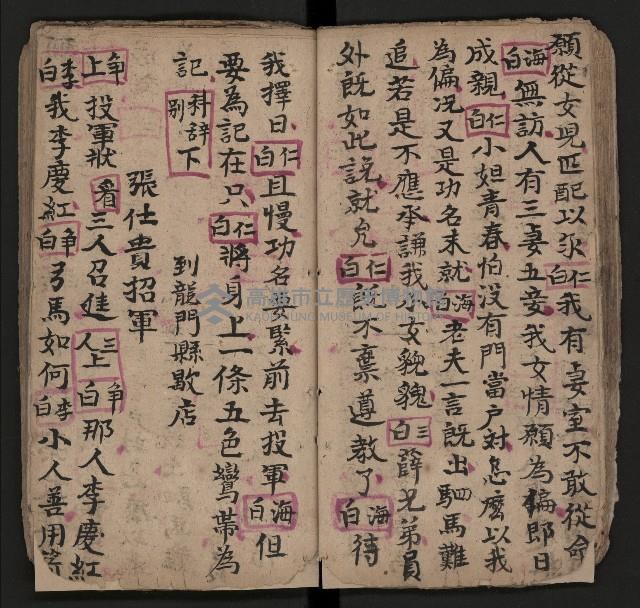 願從女兒匹配以永仁白我有妻室不敢從命
海白無訪人有三妻五妾我女情願為偏即日
成親仁白小姐青春怕沒有門當户對怎麼以我
為偏况又是功名未就海白老夫一言既出駟馬難
追若是不應承謙我女貌魄三白薛兄弟員
外既如此說就允仁白既不棄遵教了海白待
我擇日仁白且慢功名要緊前去投軍海白但
要為記在只仁白將身上一條五色鸞帶為
記科辞别下 到龍門縣歇店
張仕貴招軍
爭上投軍狀看三人召進三人上爭白那人李慶紅
李白我李慶紅爭白弓馬如何李白小人善用
高雄市立歷史博物館
KAOHSIUNG MUSEUM OF HISTORY